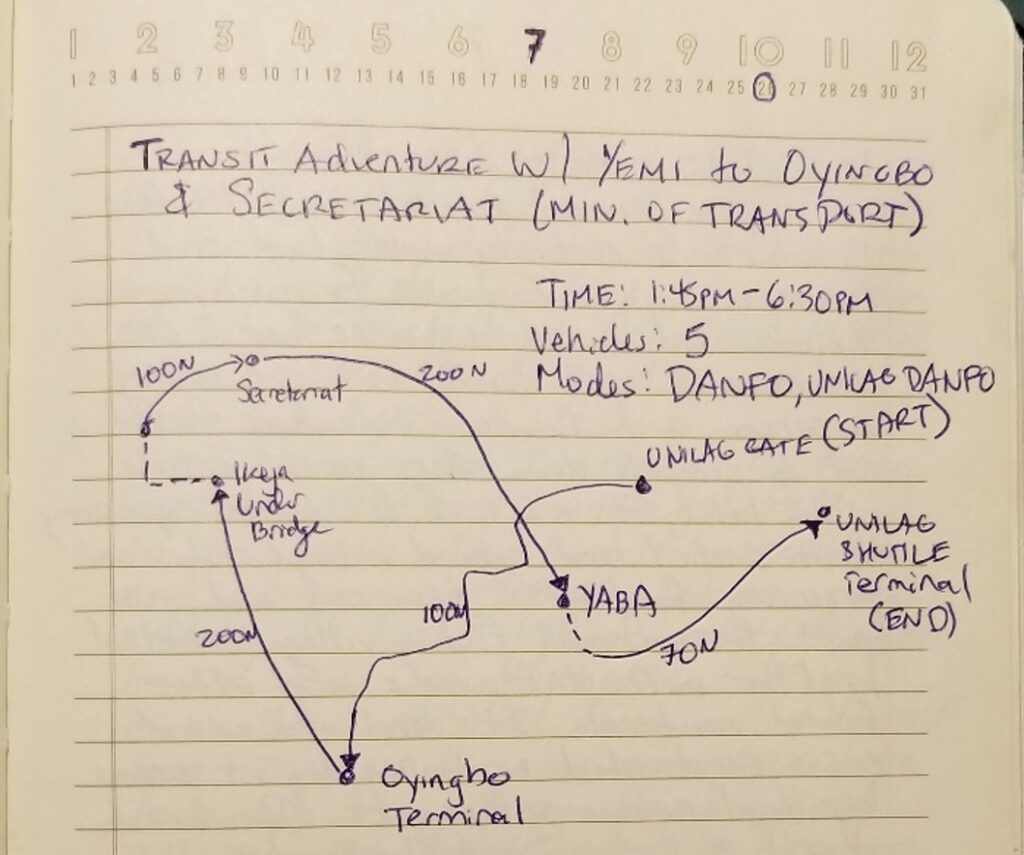 1 2 3 4 5 6 7 8 9 10 11 12
1 2 3 4 5 6 7 8 9 10 11 12 13 14 15 16 17 18 19 20 21 22 23 24 25 26 27 28 29 30 31
TRANSIT AdvENTURE W/ YEMI to OYINGBO
& SECRETARIAT (MIN. OF TRANSPORT)
TIME: 1:45PM-6:30PM
Vehicles: 5
Modes: DANFO, UNILAG DANFO
100N
Secretariat
200N
UNILAG GATE (START)
Ikeja
Under
Bridge
UNILAG
SHUTTLE
Terminal
(END)
YABA
100N
200N
70N
Oyingbo
Terminal